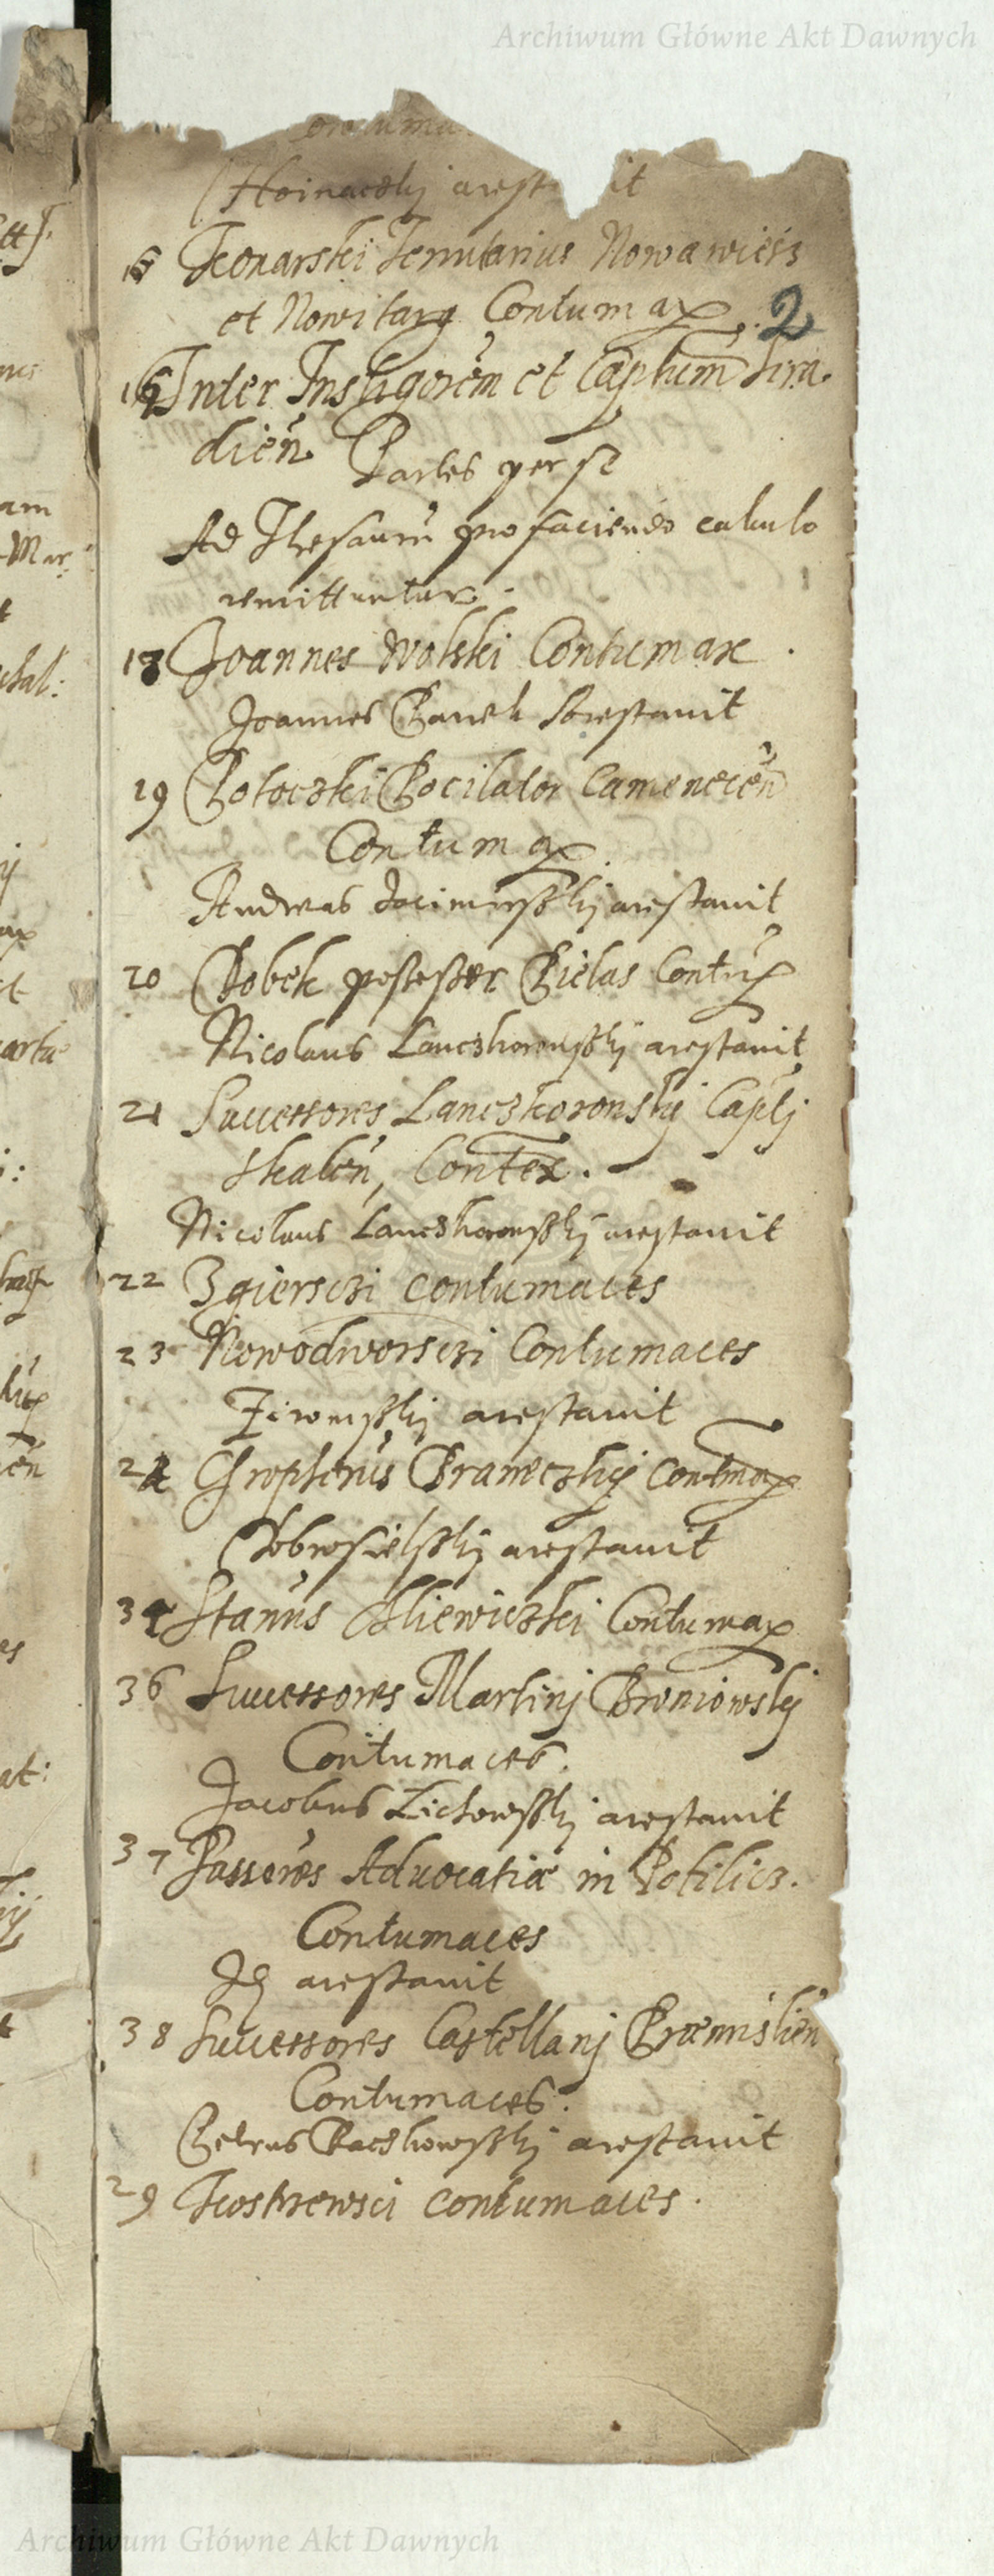 Archiwum Główne Akt Dawnych
Hoinaczkij arest it
15 Konarski Tenutarius Nowawieś
et Nowitarg Contumax. 2
16 Inter Instigorem et Captum Sira
dien̄ Partes per se
Ad Thesaurū pro faciendo calculo
remittuntur.
18 Joannes Wolski Contumax.
Joannes arestauit
19 Potoczki Pocilator Camenecen̄
Contumax.
Andreas arestauit
20 Bobek posessor Bielas Contūx
Nicolaus Lanczkoronsskij arestauit
21 Successores Lanczkoronskij Captj
Skalen̄, Contex.
Nicolaus Lanczkoronsskij arestauit
22 Zgiersczi contumaces
23 Nowodworsczi Contumaces
arestauit
24 Braneczkij Contmax
Dobrosielsskij arestauit
34 Stanūs Contumax
36 Successores Martinj Broniowskij
Contumaces.
Jacobus Lichowsskij arestauit
37 Passores Aduocatiæ in Potilicz.
Contumaces
Id arestauit
38 Successores Castellanj Præmislien
Contumaces.
Petrus Raczkowsskij arestauit
29 Kostrewsci contumaces.
Archiwum Główne Akt Dawnych